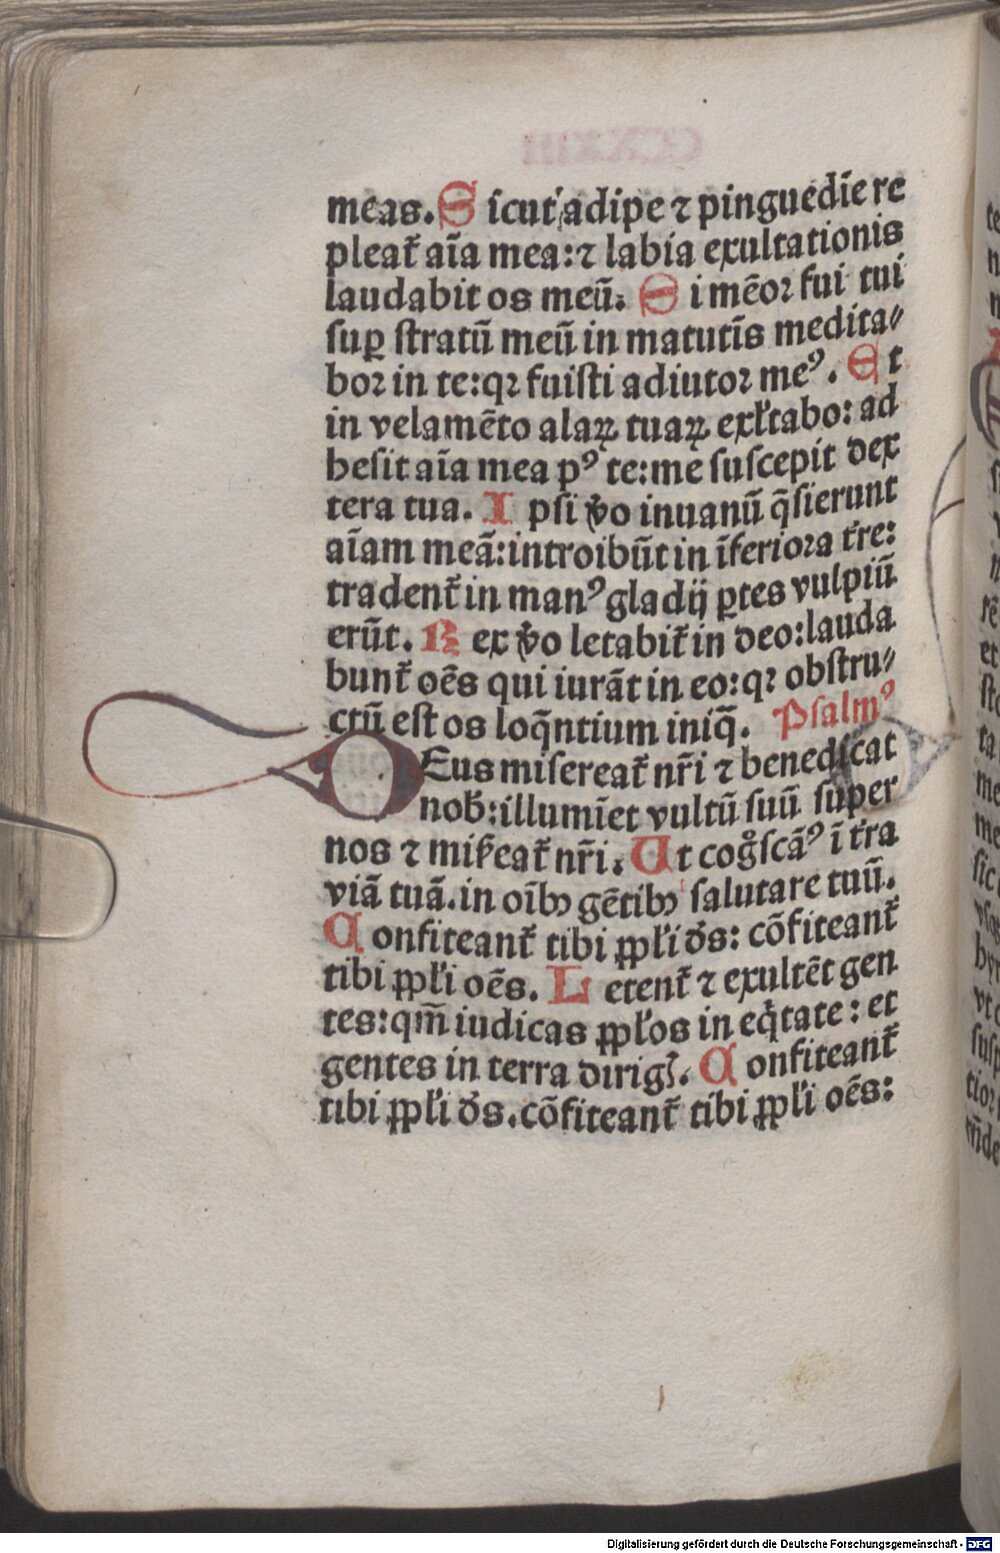 meas. Sicut adipe ⁊ pinguedīe re
pleat᷑ aīa mea: ⁊ labia exultationis
laudabit os meū. Si mēoꝛ fui tui
suꝑ stratū meū in matutīs medita⸗
boꝛ in te: qꝛ fuisti adiutoꝛ meꝰ. Et
in velamēto alaꝝ tuaꝝ exl̓tabo: ad
hesit aīa mea pꝰ te: me suscepit dex
tera tua. Ipsi v̓o inuanū q̄sierunt
aīam meā: introibūt in īferioꝛa t̓re:
tradent᷑ in manꝰ gladij ꝑtes vulpiū
erūt. Rex v̓o letabit᷑ in deo: lauda
bunt᷑ oēs qui iurāt in eo: qꝛ obstru⸗
ctū est os loq̄ntium iniq̄. Psalmꝰ
DEus misereat᷑ nr̄i ⁊ benedicat
nob̓: illumīet vultū suū super
nos ⁊ mis̓eat᷑ nr̄i. Ut cog̊scāꝰ ī t̓ra
viā tuā. in oībꝫ gētibꝫ salutare tuū.
Confiteant᷑ tibi ppl̓i d̓s: cōfiteant᷑
tibi ppl̓i oēs. Letent᷑ ⁊ exultēt gen
tes: qm̄ iudicas ppl̓os in eq̇tate: et
gentes in terra dirigꝭ. Confiteant᷑
tibi ppl̓i d̓s. cōfiteant᷑ tibi ppl̓i oēs:
Digitalisierung gefördert durch die Deutsche Forschungsgemeinschaft - DFG